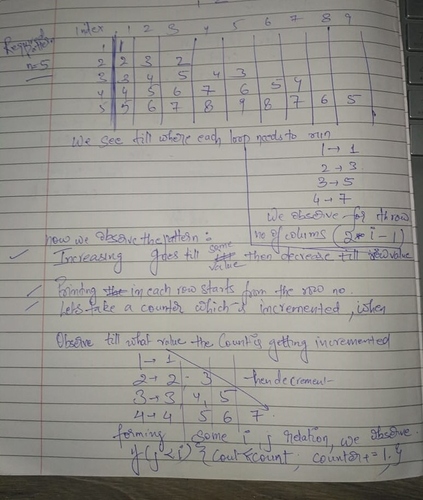 Required pattern n=5
Index 1 2 3 4 5 6 7 8 9
1 1
2 2 3 2
3 3 4 5 4 3
4 4 5 6 7 6 5 4
5 5 6 7 8 9 8 7 6 5
We see till where each loop needs to run
1 → 1
2 → 3
3 → 5
4 → 7
We observe for throw
no of colums (2*i-1)
now we observe the pattern :
Increasing goes till some value then decrease till row value
Printing in each row starts from the row no.
Lets take a counter which is incremented, when
Observe till what value the Count is getting incremented
1 → 1
2 → 2 3 then decrement
3 → 3 4, 5
4 → 4 5 6 7
forming some i j relation, we observe.
if (j<i) { cout << count; counter += 1; }